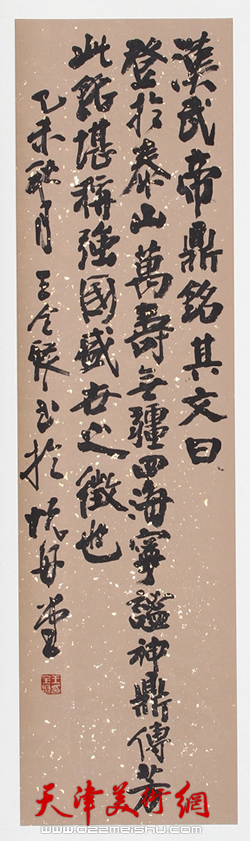 漢武帝鼎銘其文曰
登於泰山萬壽無疆四海寧謐神鼎傳芳
此銘堪稱強國盛世之徵也
乙未秋月王全聚書於
天津美術網
www.022meishu.com